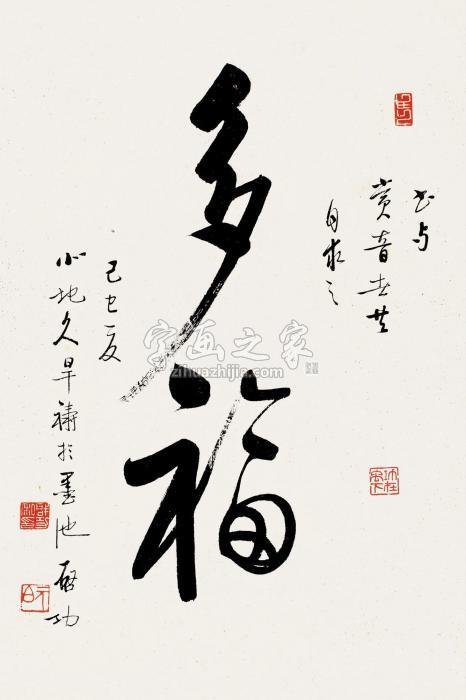 书与
赏音者共
自求之
多福
己巳夏
北地久旱禱於墨池 启功
字画之家
zihuazhijia.com